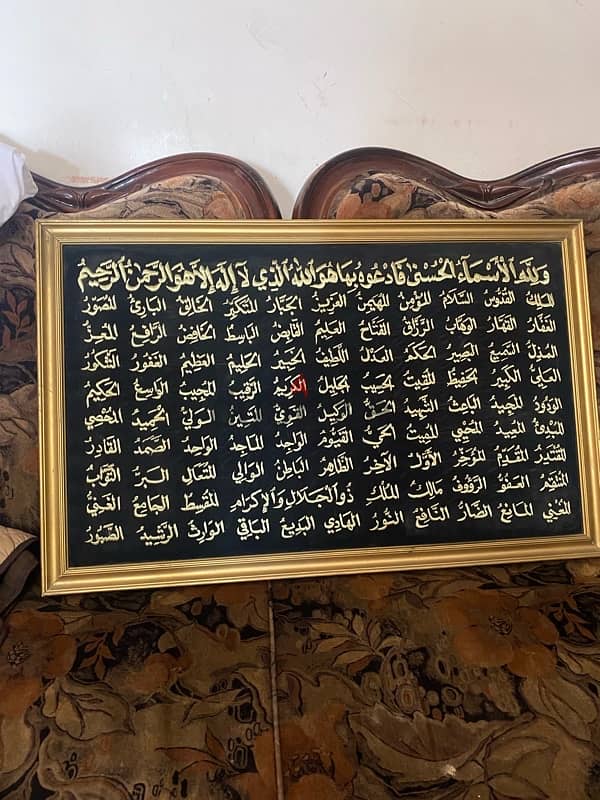 ولله الأسماء الحسنى فادعوه بها هو الله الذي لا إله إلا هو الرحمن الرحيم
الملك القدوس السلام المؤمن المهيمن العزيز الجبار المتكبر الخالق البارئ المصور
الغفار القهار الوهاب الرزاق الفتاح العليم القابض الباسط الخافض الرافع المعز
المذل السميع البصير الحكم العدل اللطيف الخبير الحليم العظيم الغفور الشكور
العلي الكبير الحفيظ المقيت الحسيب الجليل الكريم الرقيب المجيب الواسع الحكيم
الودود المجيد الباعث الشهيد الحق الوكيل القوي المتين الولي الحميد المحصي
المبدئ المعيد المحيي المميت الحي القيوم الواجد الماجد الواحد الصمد القادر
المقتدر المقدم المؤخر الأول الآخر الظاهر الباطن الوالي المتعال البر التواب
المنتقم العفو الرؤوف مالك الملك ذو الجلال والإكرام المقسط الجامع الغني
المغني المانع الضار النافع النور الهادي البديع الباقي الوارث الرشيد الصبور